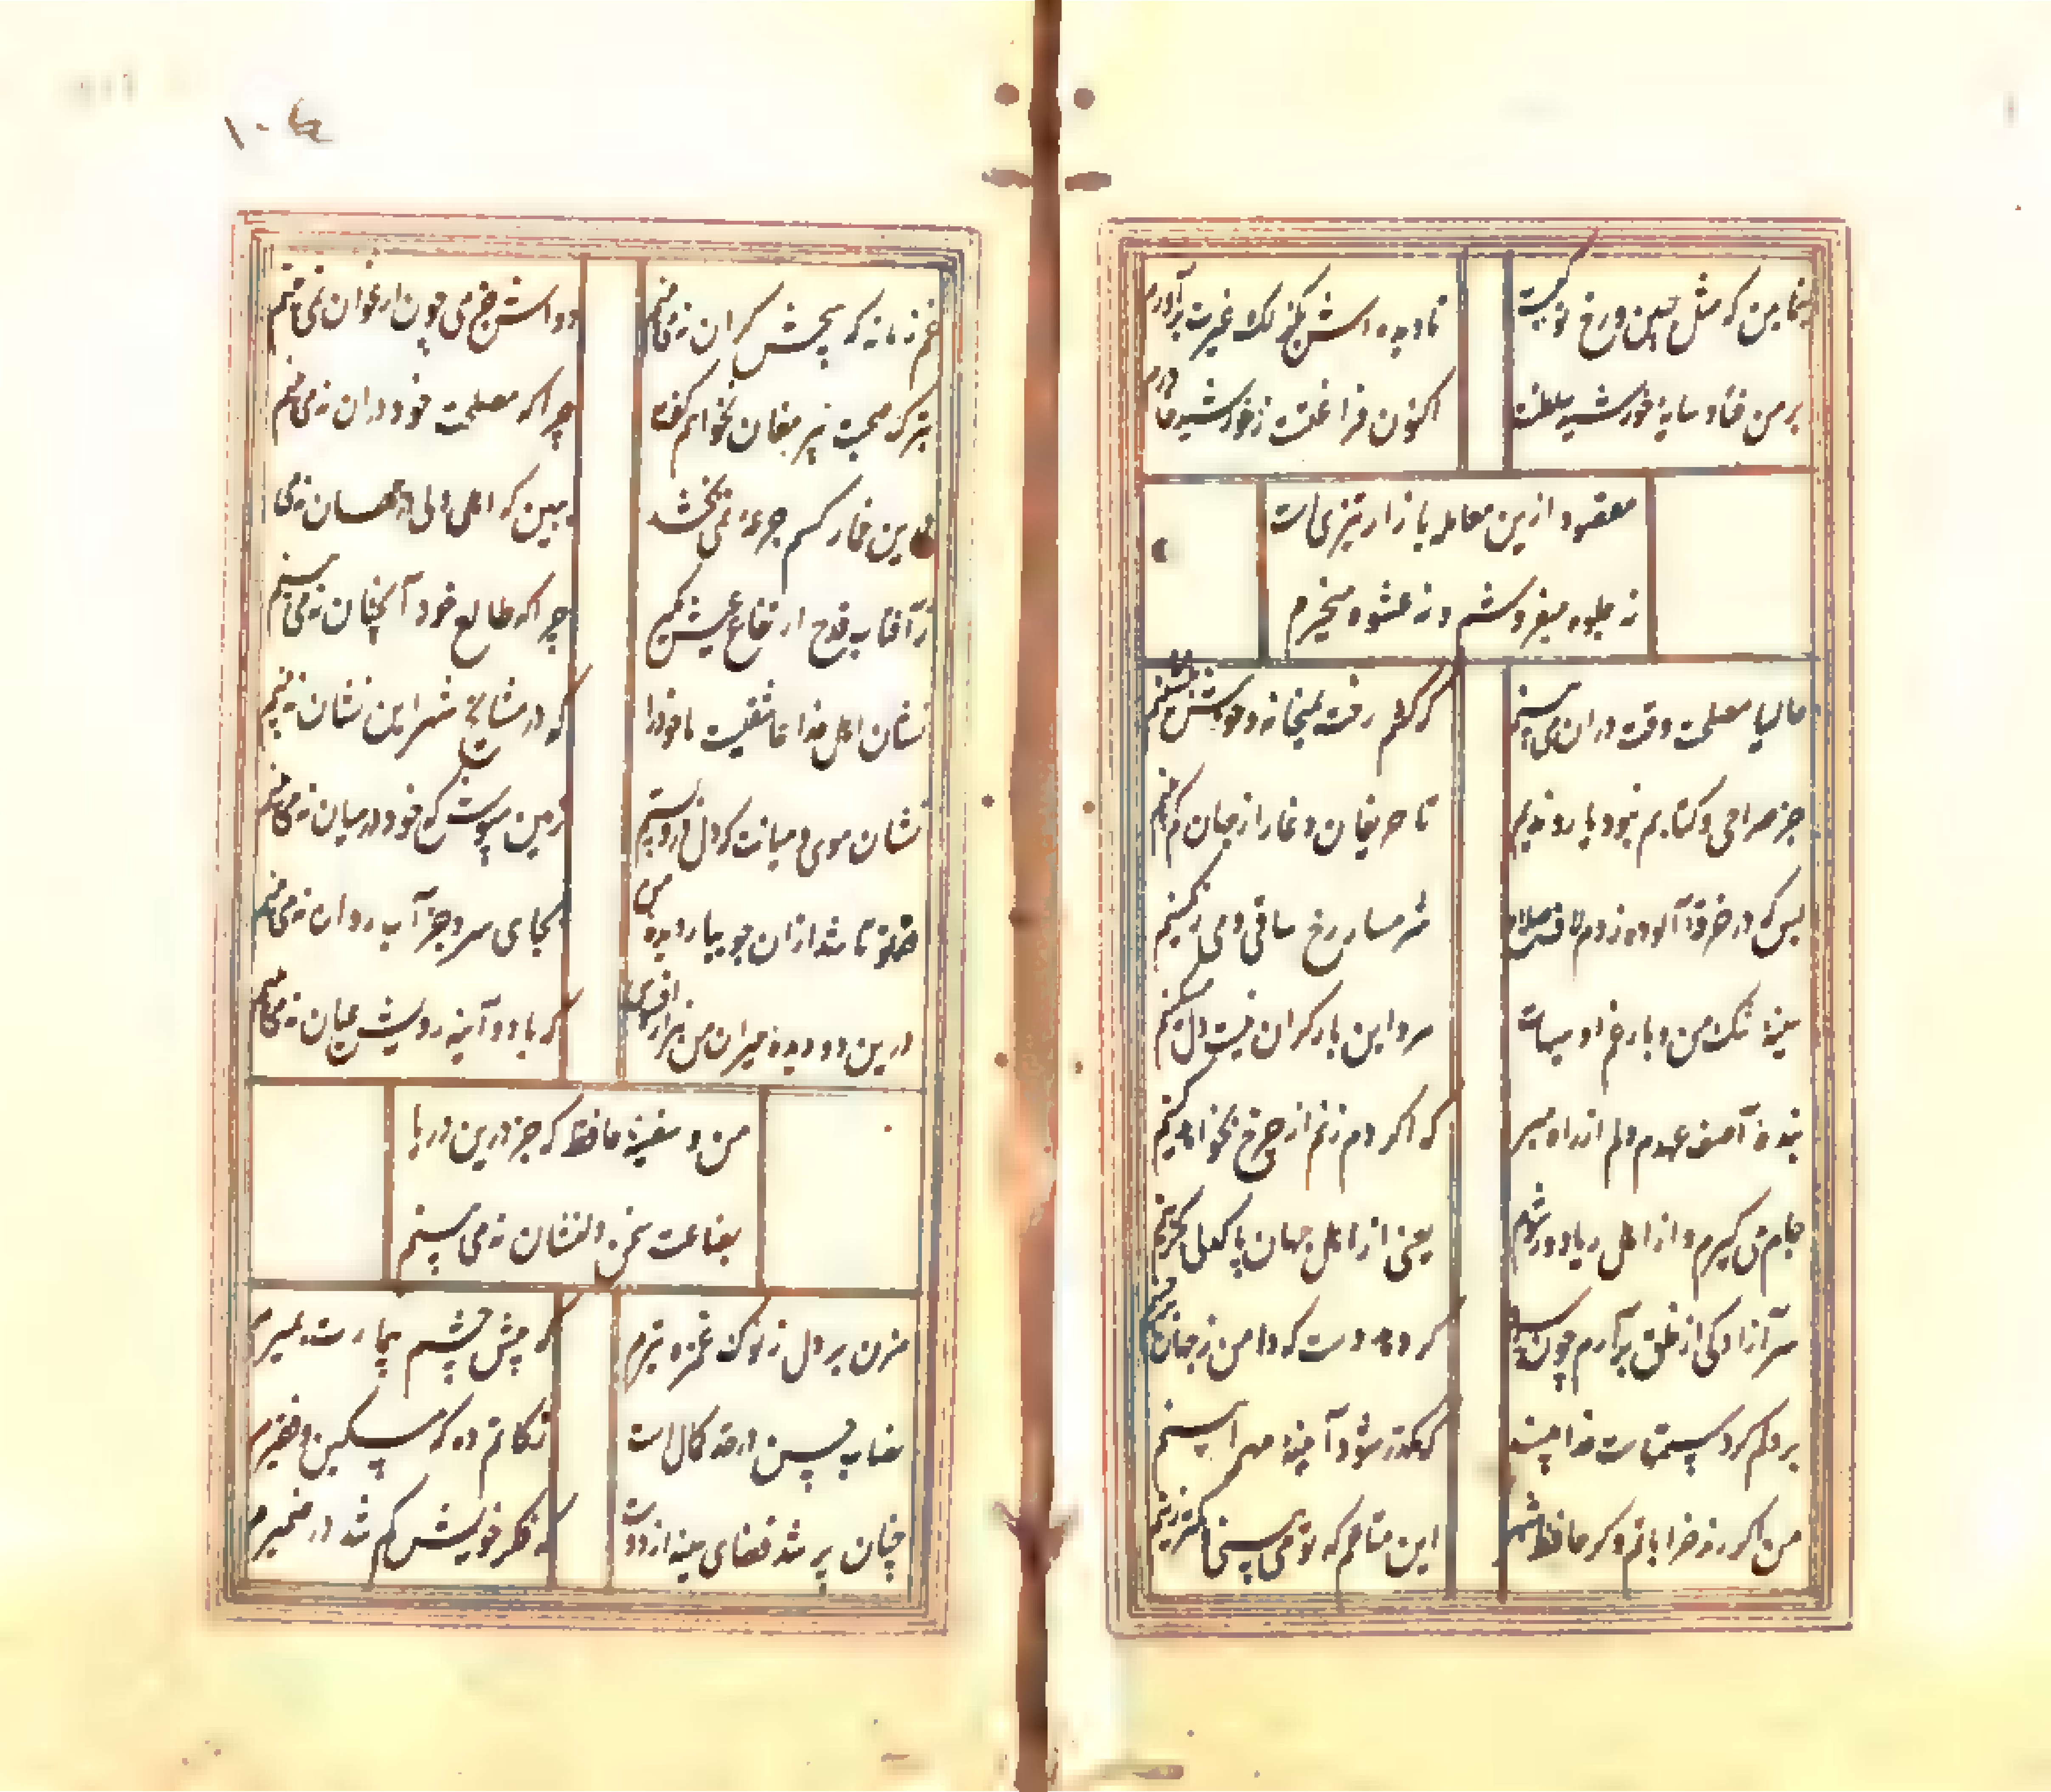 بنما بمن که مثل حسین و رخ تو کیست
تا دیده‌اش بکزلک غیرت برآورم
بر من فتاد سایه خورشید سلطنت
اکنون فراغتست ز خورشید خاورم
مقصود ازین معامله بازار تیزی است
نه جلوه میفروشم و نه عشوه میخرم
حالیا مصلحت وقت در آن می‌بینم
که کشم رخت بمیخانه و خوش بنشینم
جز صراحی و کتابم نبود یار و ندیم
تا حریفان دغا را ز جهان کم بینم
بس که در خرقه آلوده زدم لاف صلاح
شرمسار رخ ساقی و می رنکینم
سینه تنک من و بار غم او هیهات
مرد این بار کران نیست دل مسکینم
بنده آصف عهدم دلم از راه مبر
که اکر دم زنم از چرخ بخواهد کینم
جام می گیرم و از اهل ریا دور شوم
یعنی از اهل جهان پاکدلی بکزینم
سر آزادکی از خلق برآرم چون سرو
گر دهد دست که دامن ز جهان برچینم
بر دلم کرد ستمهاست خدایا مپسند
که مکدر شود آینه مهر آیینم
من اکر رند خراباتم و کر حافظ شهر
این متاعم که تو می‌بینی و کمتر زینم
۱۰۴
غم زمانه که هیچش کران نه می‌بینم
دواش جز می چون ارغوان نمی‌بینم
بترک صحبت پیر مغان نخواهم گفت
چرا که مصلحت خود در آن نه می‌بینم
درین خمار کسم جرعه نمی‌بخشد
ببین که اهل دلی در جهان نه می‌بینم
ز آفتاب قدح ارتفاع عیش بگیر
چرا که طالع خود آنچنان نه می‌بینم
نشان اهل خدا عاشقیست با خود دار
که در مشایخ شهر این نشان نه می‌بینم
نشان موی میانت که دل درو بستم
ز من مپرس که خود در میان نه می‌بینم
قد تو تا بشد از جویبار دیده من
بجای سرو جز آب روان نه می‌بینم
درین دو دیده حیران من هزار افسوس
که با دو آینه رویش عیان نه می‌بینم
من و سفینه حافظ که جز درین دریا
بضاعت سخن دلنشان نه می‌بینم
مزن بر دل ز نوک غمزه تیرم
که پیش چشم بیمارت بمیرم
نصاب حسن در حد کمال است
زکاتم ده که مسکین و فقیرم
چنان پر شد فضای سینه از دوست
که فکر خویش کم شد در ضمیرم